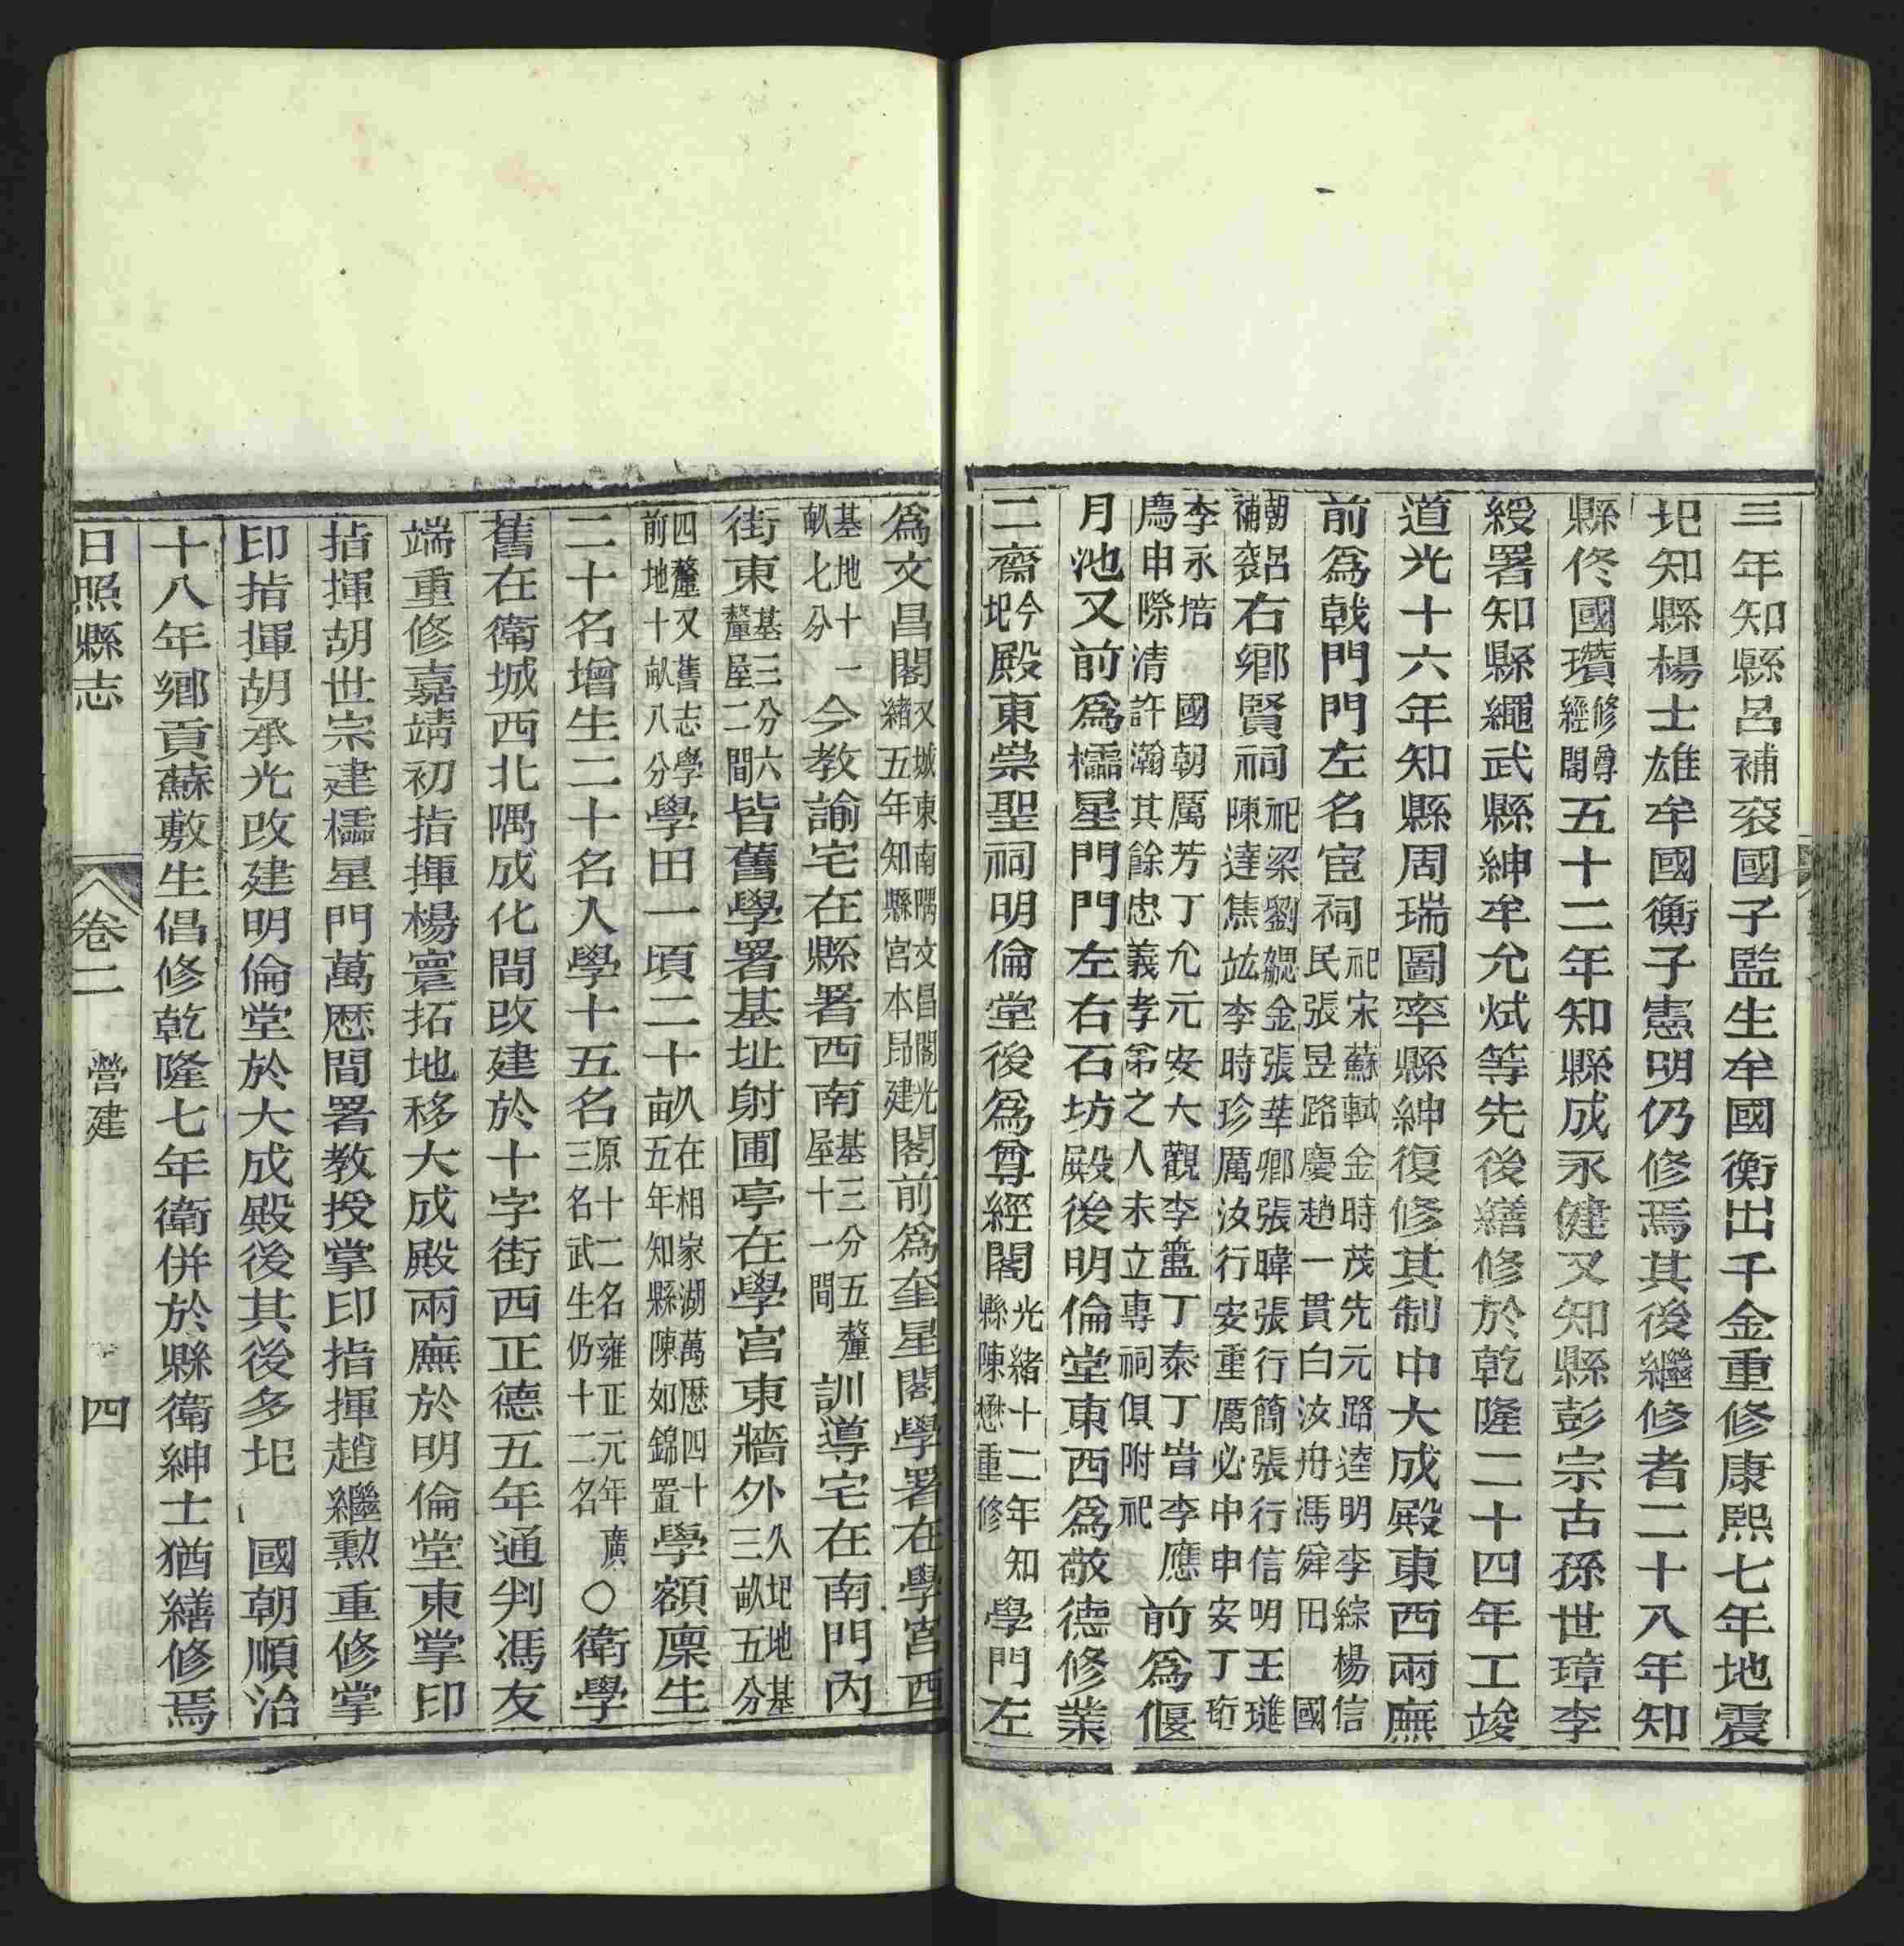 三年知縣呂補衮國子監生牟國衡出千金重修康熙七年地震
圮知縣楊士雄牟國衡子憲明仍修焉其後繼修者二十八年知
縣佟國瓚修尊經閣五十二年知縣成永健又知縣彭宗古孫世璋李
綬署知縣繩武縣紳牟允烒等先後繕修於乾隆二十四年工竣
道光十六年知縣周瑞圖率縣紳復修其制中大成殿東西兩廡
前爲戟門門左名宦祠祀宋蘇軾金時茂先元路逵明李綜楊信民張昱路慶趙一貫白汝舟馮舜田國
朝呂補衮右鄉賢祠祀梁劉勰金張莘卿張暐張行簡張行信明王璡陳達焦竑李時珍厲汝行安重厲必中申安丁珩
李永培國朝厲芳丁允元安大觀李盞丁泰丁旹李應廌申際清許瀚其餘忠義孝弟之人未立專祠俱附祀前爲偃
月池又前爲櫺星門門左右石坊殿後明倫堂東西爲敬德修業
二齋今圮殿東崇聖祠明倫堂後爲尊經閣光緒十二年知縣陳懋重修學門左
爲文昌閣又城東南隅文昌閣光緒五年知縣宮本昻建閣前爲奎星閣學署在學宮西
基地十一畝七分今教諭宅在縣署西南基三分五釐屋十一間訓導宅在南門內
街東基三分六釐屋二間皆舊學署基址射圃亭在學宮東牆外久圯地基三畝五分
四釐又舊志學前地十畝八分學田一頃二十畝久在相家湖萬厯四十五年知縣陳如錦置學額廩生
二十名增生二十名入學十五名原十二名雍正元年廣三名武生仍十二名○衛學
舊在衛城西北隅成化間改建於十字街西正德五年通判馮友
端重修嘉靖初指揮楊寰拓地移大成殿兩廡於明倫堂東掌印
指揮胡世宗建櫺星門萬厯間署教授掌印指揮趙繼勲重修掌
印指揮胡承光改建明倫堂於大成殿後其後多圮國朝順治
十八年鄉貢蘇敷生倡修乾隆七年衛併於縣衛紳士猶繕修焉
日照縣志 卷二 營建 四